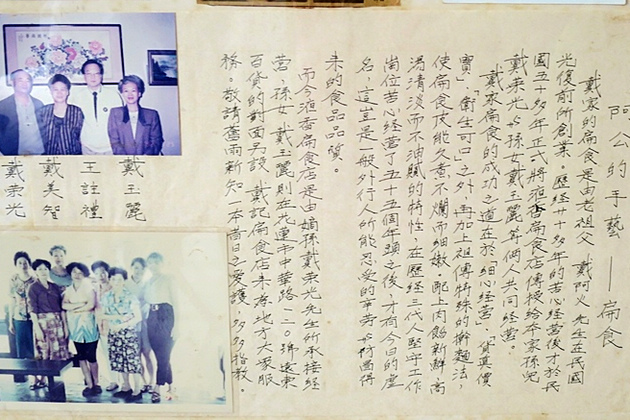 阿公的手藝——扁食
戴家的扁食是由老祖父 戴阿火先生在民國
光復前所創業,歷經廿十多年的苦心經營後才於民
國五十多年正式將液香扁食店傳授給本家孫兒
戴榮光、孫女戴玉麗等個人共同經營。
戴家扁食的成功之道在於「細心經營」、「貨真價
實」、「衛生可口」之外,再加上祖傳特殊的擀麵法,
使扁食皮能久煮不爛而細嫩,配上肉餡新鮮高
湯清淡而不油膩的特性,在歷經三代人堅守工作
崗位苦心經營了五十五個年頭之後,才有今日的虛
名,這豈是一般外行人所能忍受的辛勞付出得
來的食品品質。
而今液香扁食店是由嫡孫戴榮光先生所承接經
營,孫女戴玉麗則在花蓮市中華路一二0號遠東
百貨的對面另設 戴記扁食店來為地方大眾服
務。敬請舊雨新知一本昔日之愛護,多多指教。
戴玉麗
王詮禮
戴美智
戴榮光